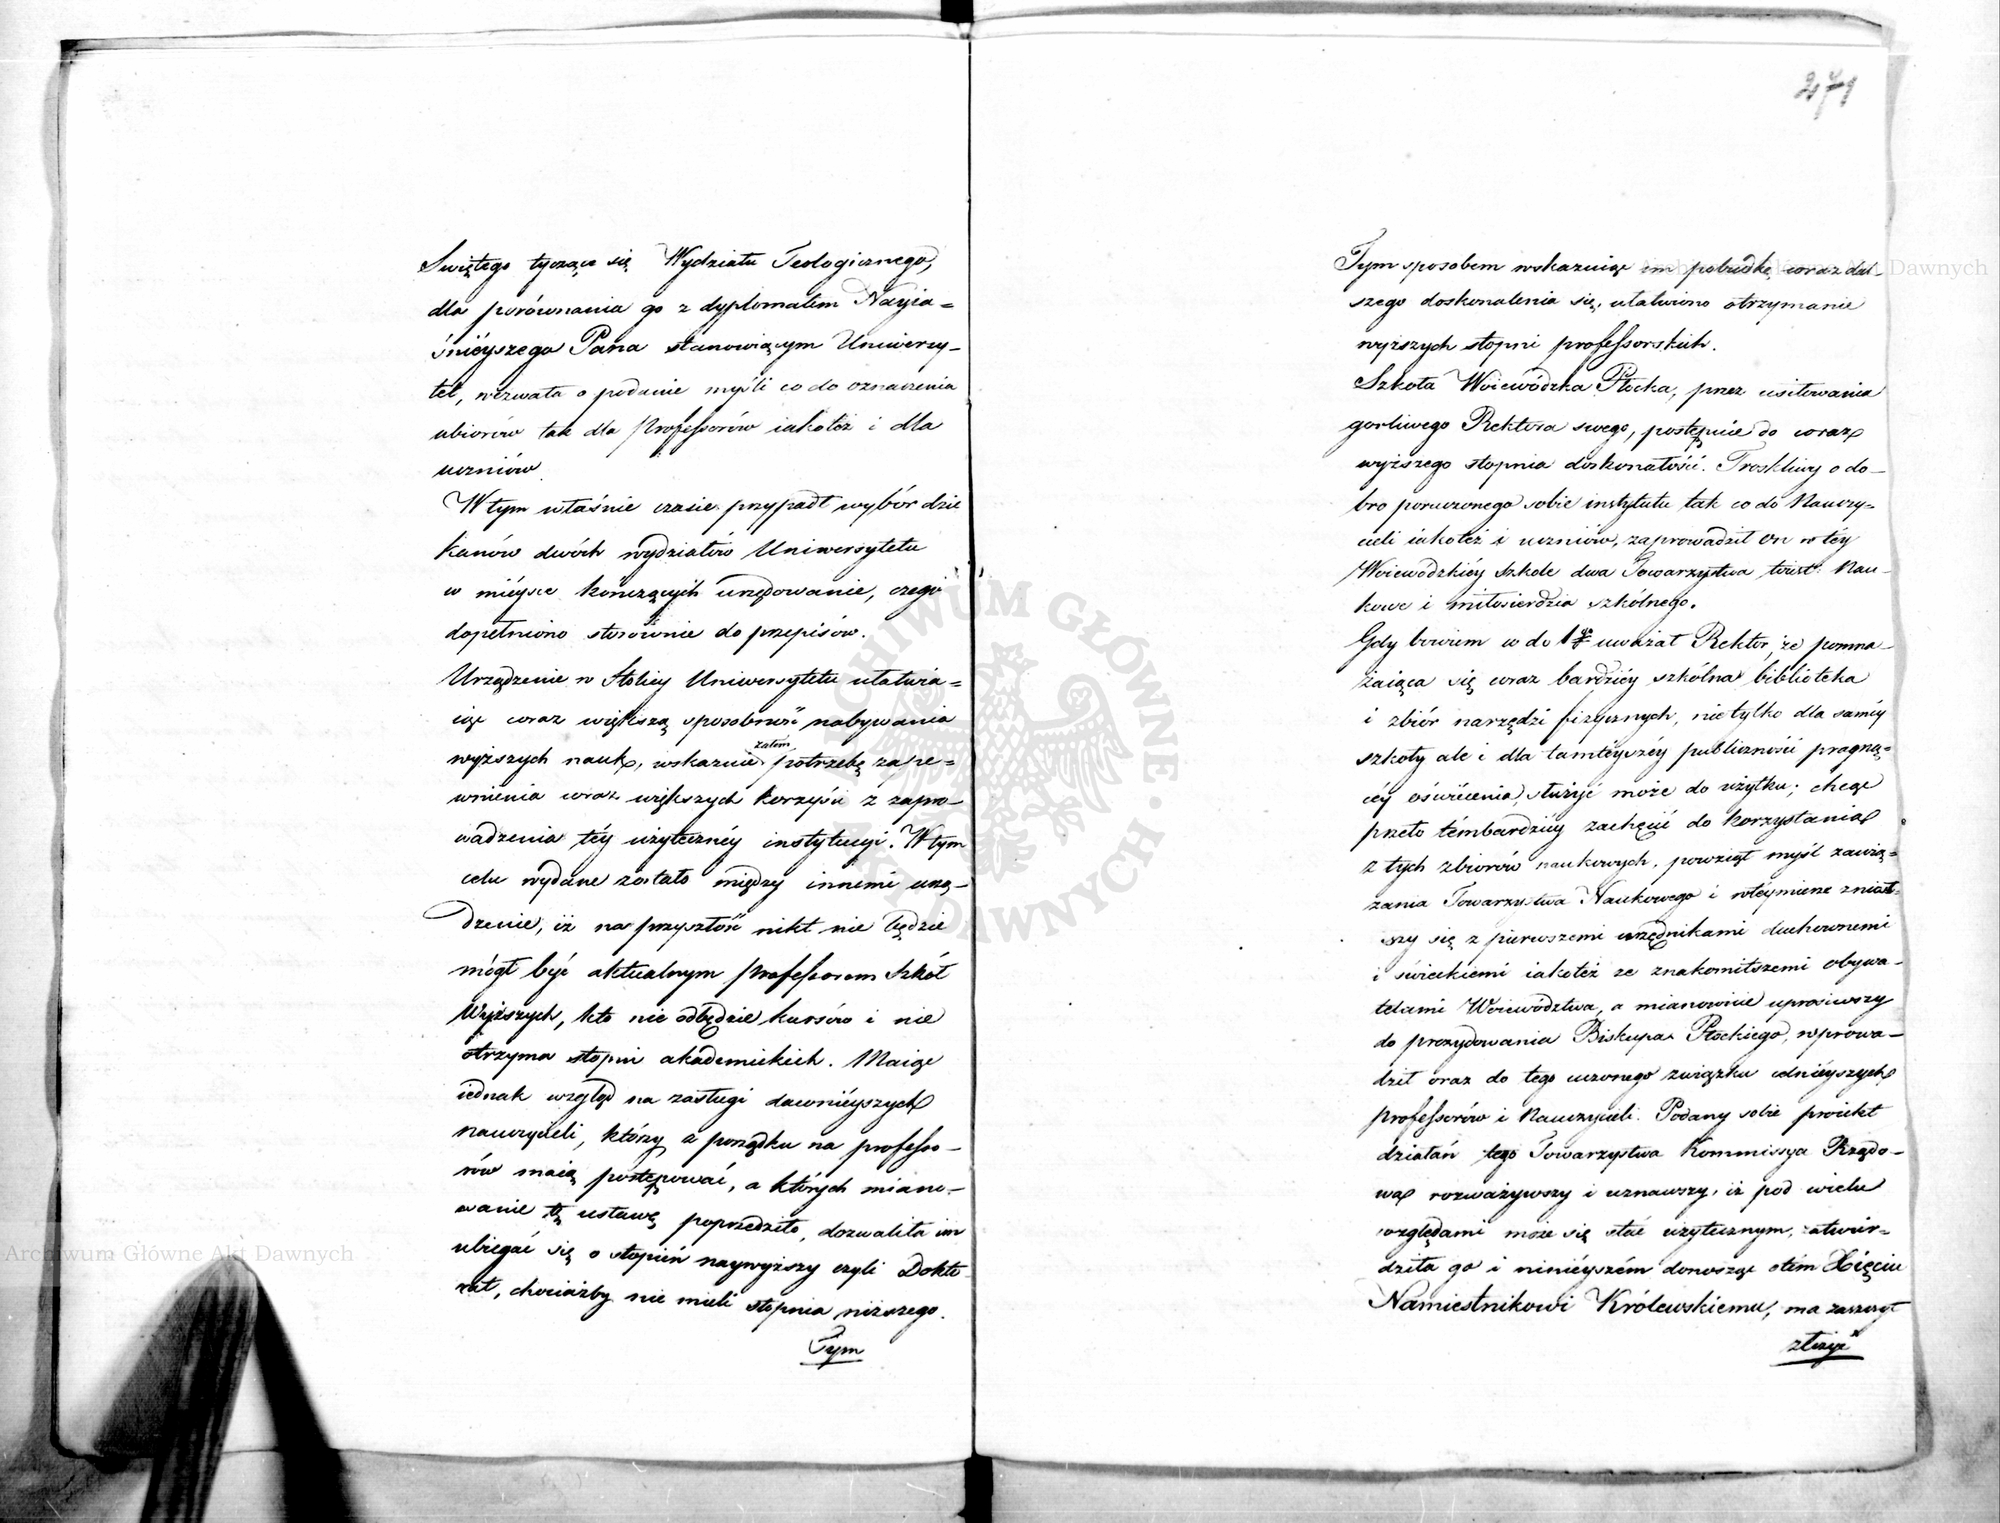 Swiętego tyczące się Wydziału Teologicznego,
dla porównania go z dyplomatem Nayia=
śnieyszego Pana stanowiącym Uniwersy-
tet, wezwała o podanie myśli co do oznaczenia
ubiorów tak dla Professorów iakoteż i dla
uczniów.
W tym właśnie czasie przypadł wybór dzie
kanów dwóch wydziałów Uniwersytetu
w mieysce kończących urzędowanie, czego
dopełniono stosownie do przepisów.
Urządzenie w Stolicy Uniwersytetu ułatwia=
iąc coraz większą sposobność nabywania
wyższych nauk, wskazuie zatem potrzebę zape=
wnienia coraz większych korzyści z zapro-
wadzenia téy użytecznéy instytucyi. W tym
celu wydane zostało między innemi urzą-
dzenie, iż na przyszłość nikt nie będzie
mógł być aktualnym professorem Szkół
Wyższych, kto nie odbędzie kursów i nie
otrzyma stopni akademickich. Maiąc
iednak wzgląd na zasługi dawnieyszych
nauczycieli, którzy z porządku na professo-
rów maią postępować, a których miano-
wanie tę ustawę poprzedziło, dozwoliła im
ubiegać się o stopień naywyższy czyli Dokto
rat, chociażby nie mieli stopnia niższego.
Tym
271
Tym sposobem wskazuiąc im pobudkę coraz dal-
szego doskonalenia się, ułatwiono otrzymanie
wyższych stopni professorskich.
Szkoła Woiewódzka Płocka, przez usiłowania
gorliwego Rektora swego, postępuie do coraz
wyższego stopnia doskonałości. Troskliwy o do-
bro poruczonego sobie instytutu tak co do Nauczy=
cieli iakoteż i uczniów, zaprowadził on w téy
Woiewódzkiéy Szkole dwa Towarzystwa to iest: Nau-
kowe i miłosierdzia szkólnego.
Gdy bowiem co do 1go uważał Rektor, że pomna-
żaiąca się coraz bardziéy szkólna biblioteka
i zbiór narzędzi fizycznych, nietylko dla saméy
szkoły ale i dla tamteyszéy publiczności pragną=
céy oświecenia, służyć może do użytku; chcąc
przeto témbardziéy zachęcić do korzystania
z tych zbiorów naukowych, powziął myśl zawią=
zania Towarzystwa Naukowego i w téy mierze zniósł-
szy się z pierwszemi urzędnikami duchownemi
i świeckiemi iakoteż ze znakomitszemi obywa-
telami Woiewództwa, a mianowicie uprosiwszy
do prezydowania Biskupa Płockiego, wprowa-
dził oraz do tego uczonego związku celnieyszych
professorów i Nauczycieli. Podany sobie proiekt
działań tego Towarzystwa Kommissya Rządo-
wa rozważywszy i uznawszy, iż pod wielu
względami może się stać użytecznym, zatwier-
dziła go i ninieyszém donosząc o tém Xięciu
Namiestnikowi Królewskiemu, ma zaszczyt
złożyć
Archiwum Główne Akt Dawnych
Archiwum Główne Akt Dawnych
ARCHIWUM GŁÓWNE AKT DAWNYCH